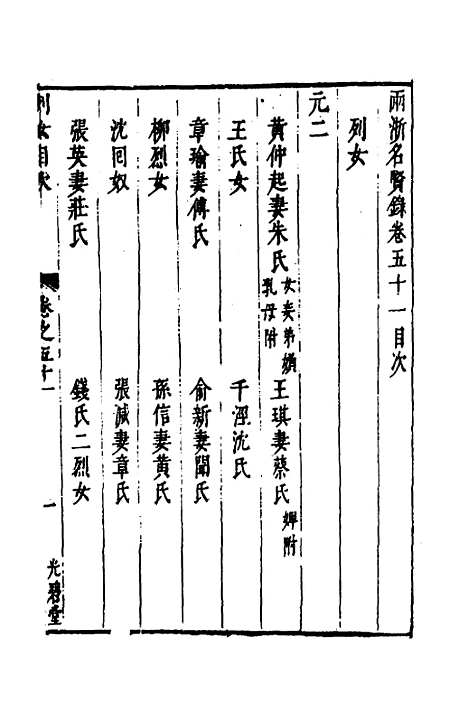 兩浙名賢錄卷五十一目次
列女
元二
黄仲起妻朱氏 女妾弟婦乳母附 王琪妻蔡氏 婢附
王氏女 千涇沈氏
章瑜妻傅氏 俞新妻聞氏
柳烈女 孫信妻黄氏
沈囘奴 張減妻章氏
張英妻莊氏 錢氏二烈女
列女目次 卷之五十一 一 光碧堂